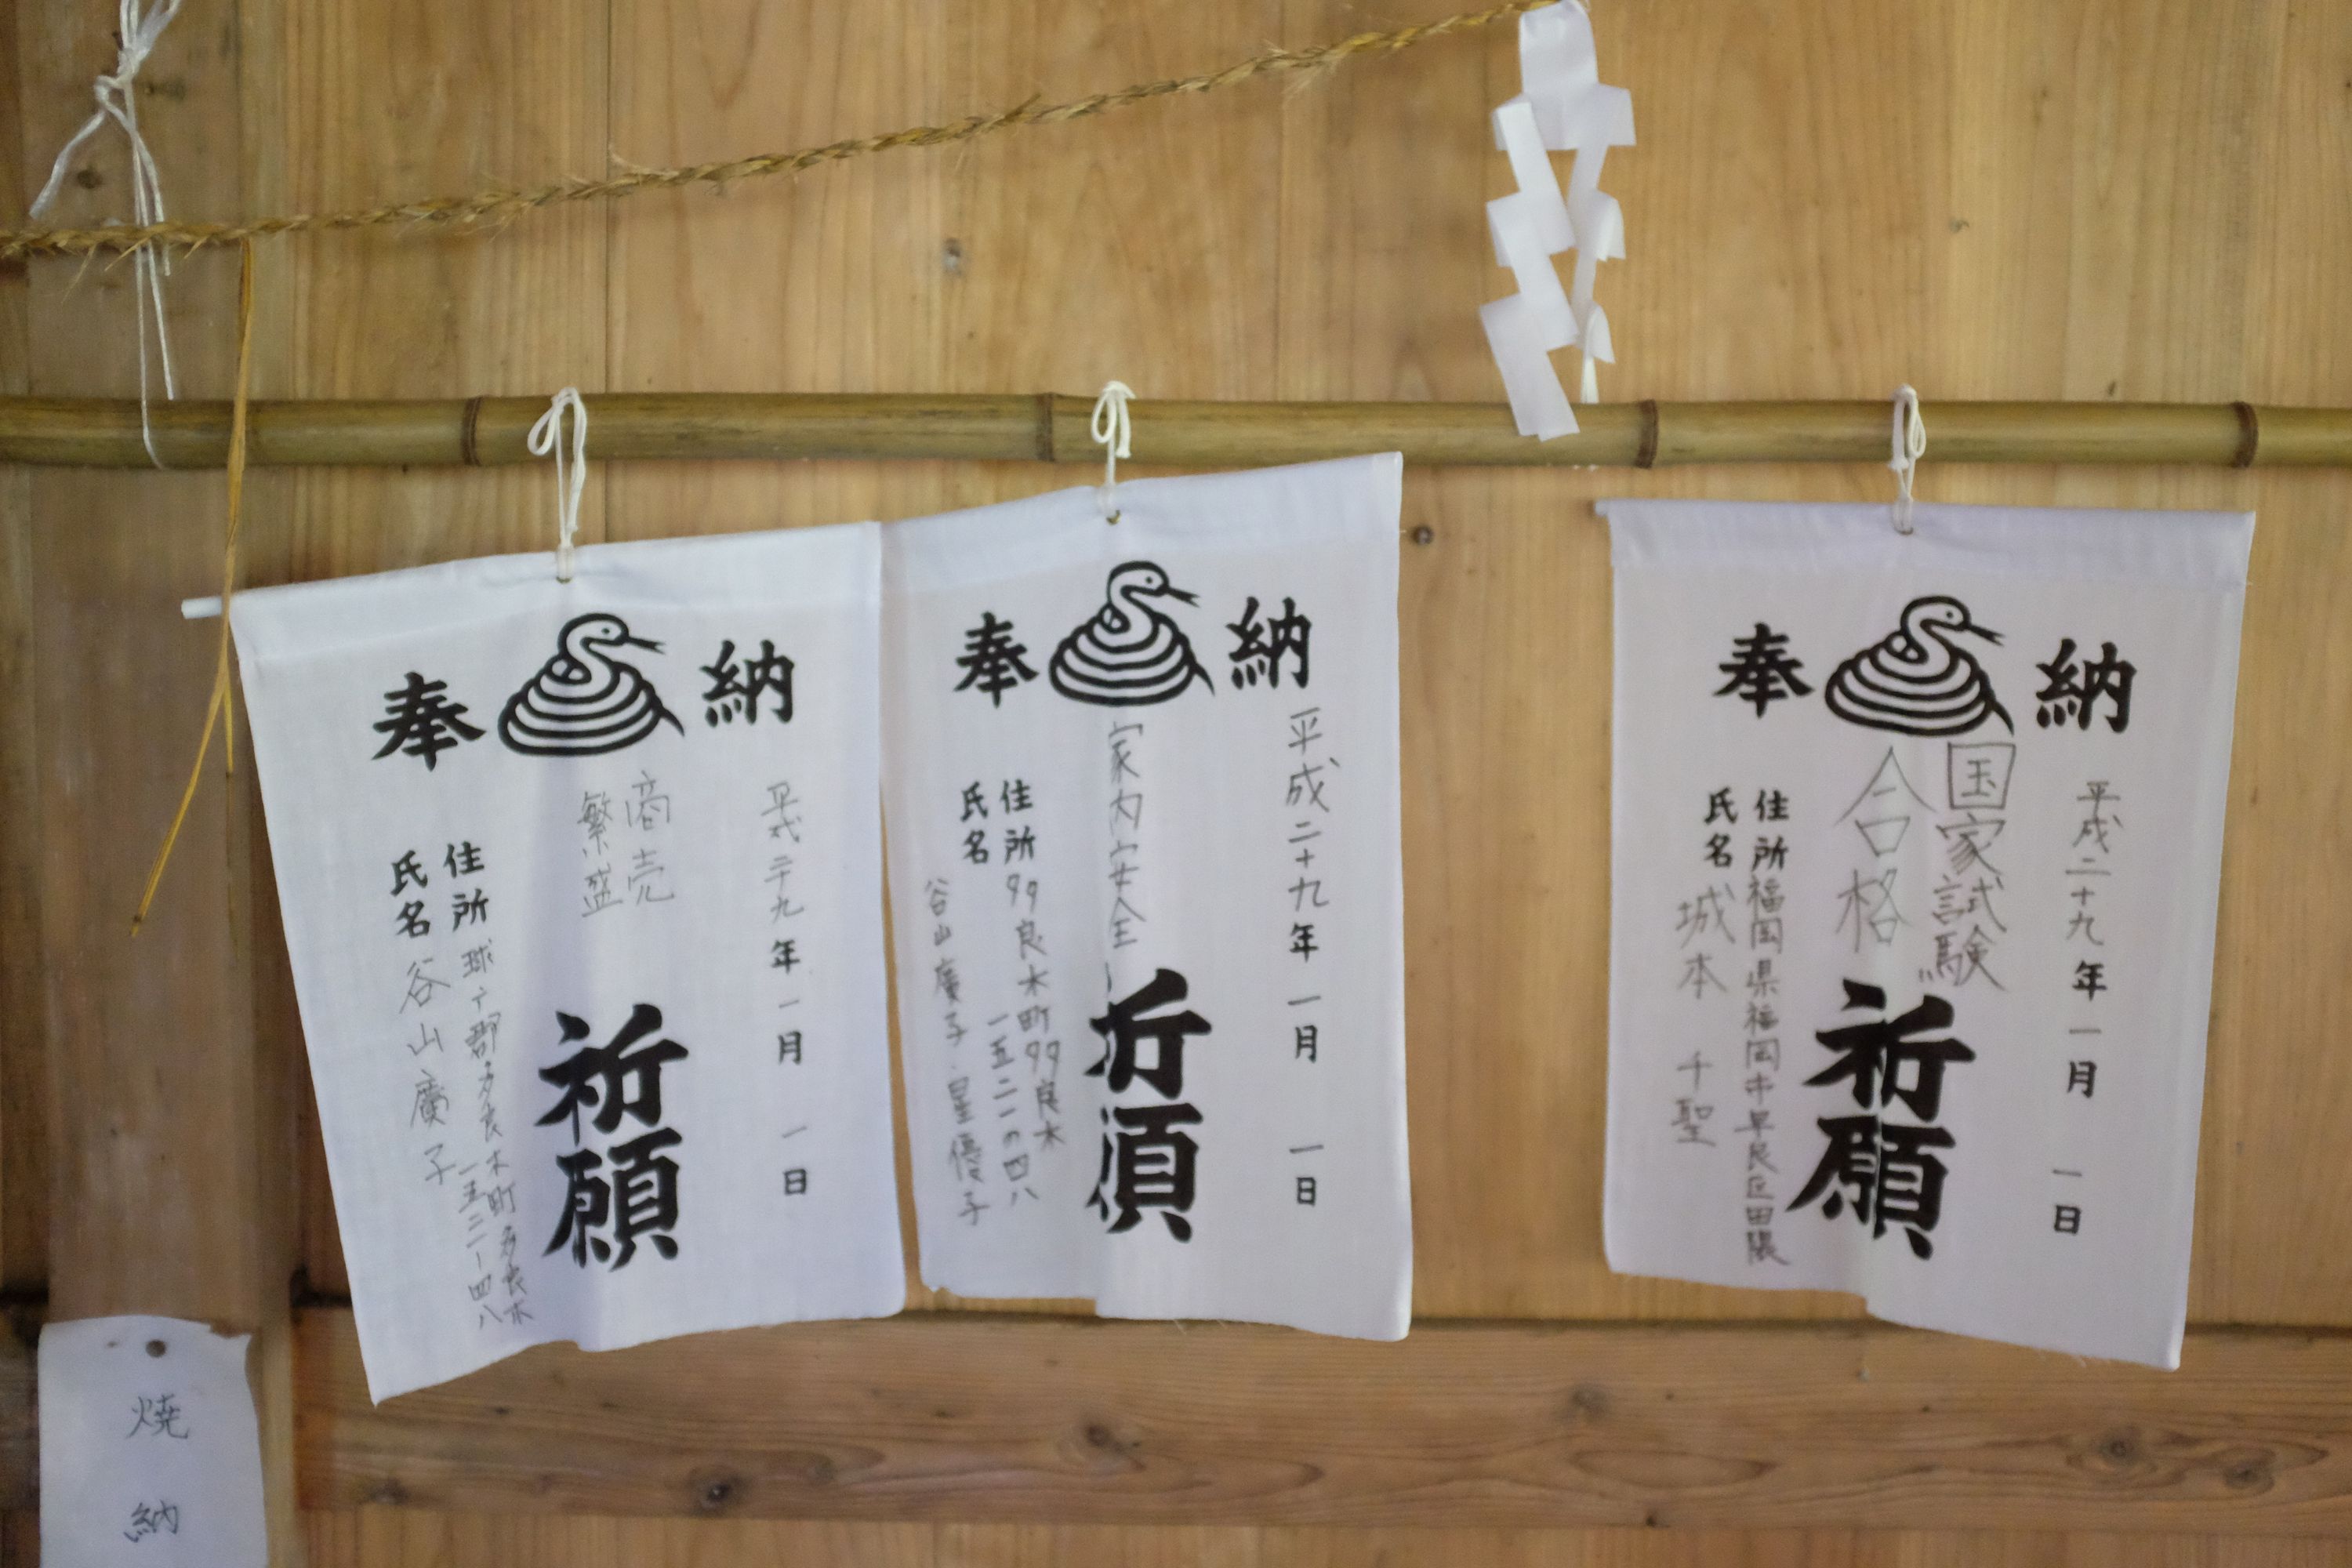 奉 納
平成二十九年一月一日
商売
繁盛
祈願
住所 球 郡多良木町多良木
一五二一一四八
氏名 谷山廣子
奉 納
平成二十九年一月一日
家内安全
祈願
住所 多々良木町多々良木
一五二一の四八
氏名
谷山廣子・星優子
奉 納
平成二十九年一月一日
国家試験
合格
祈願
住所 福岡県福岡市早良区田隈
氏名 城本 千聖
焼納